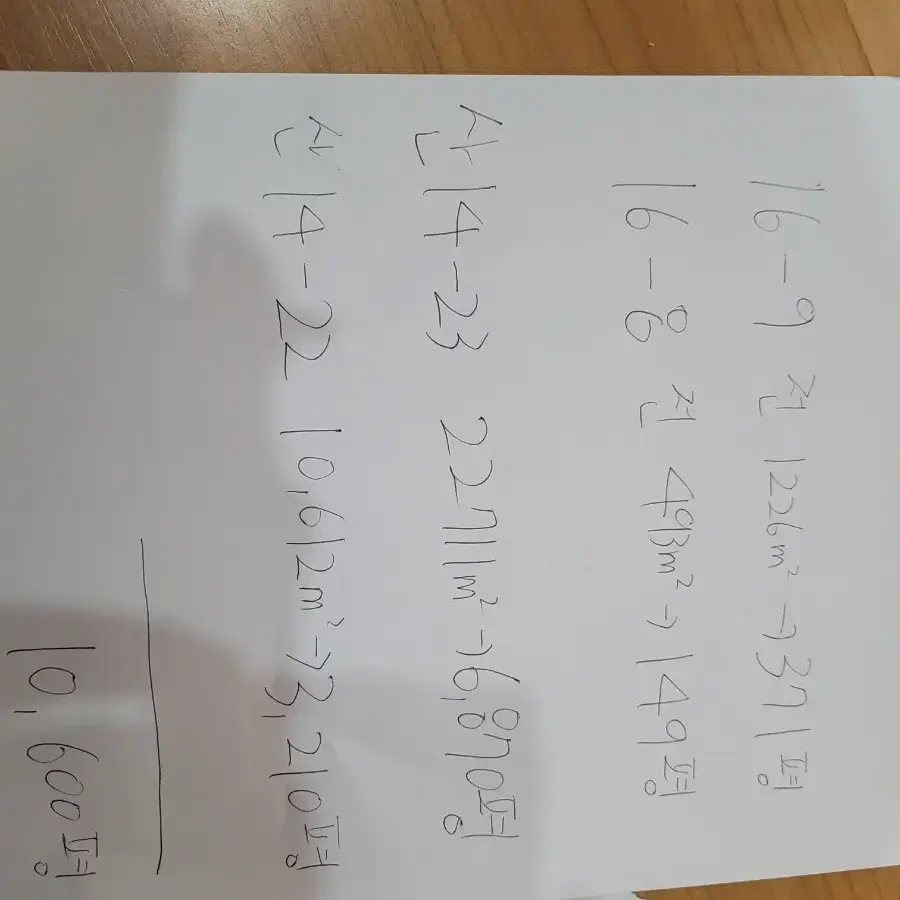 16-9 전 1226m² → 371평
16-8 전 493m² → 149평
산14-23 22711m² → 6,870평
산14-22 10,612m² → 3,210평
10,600평